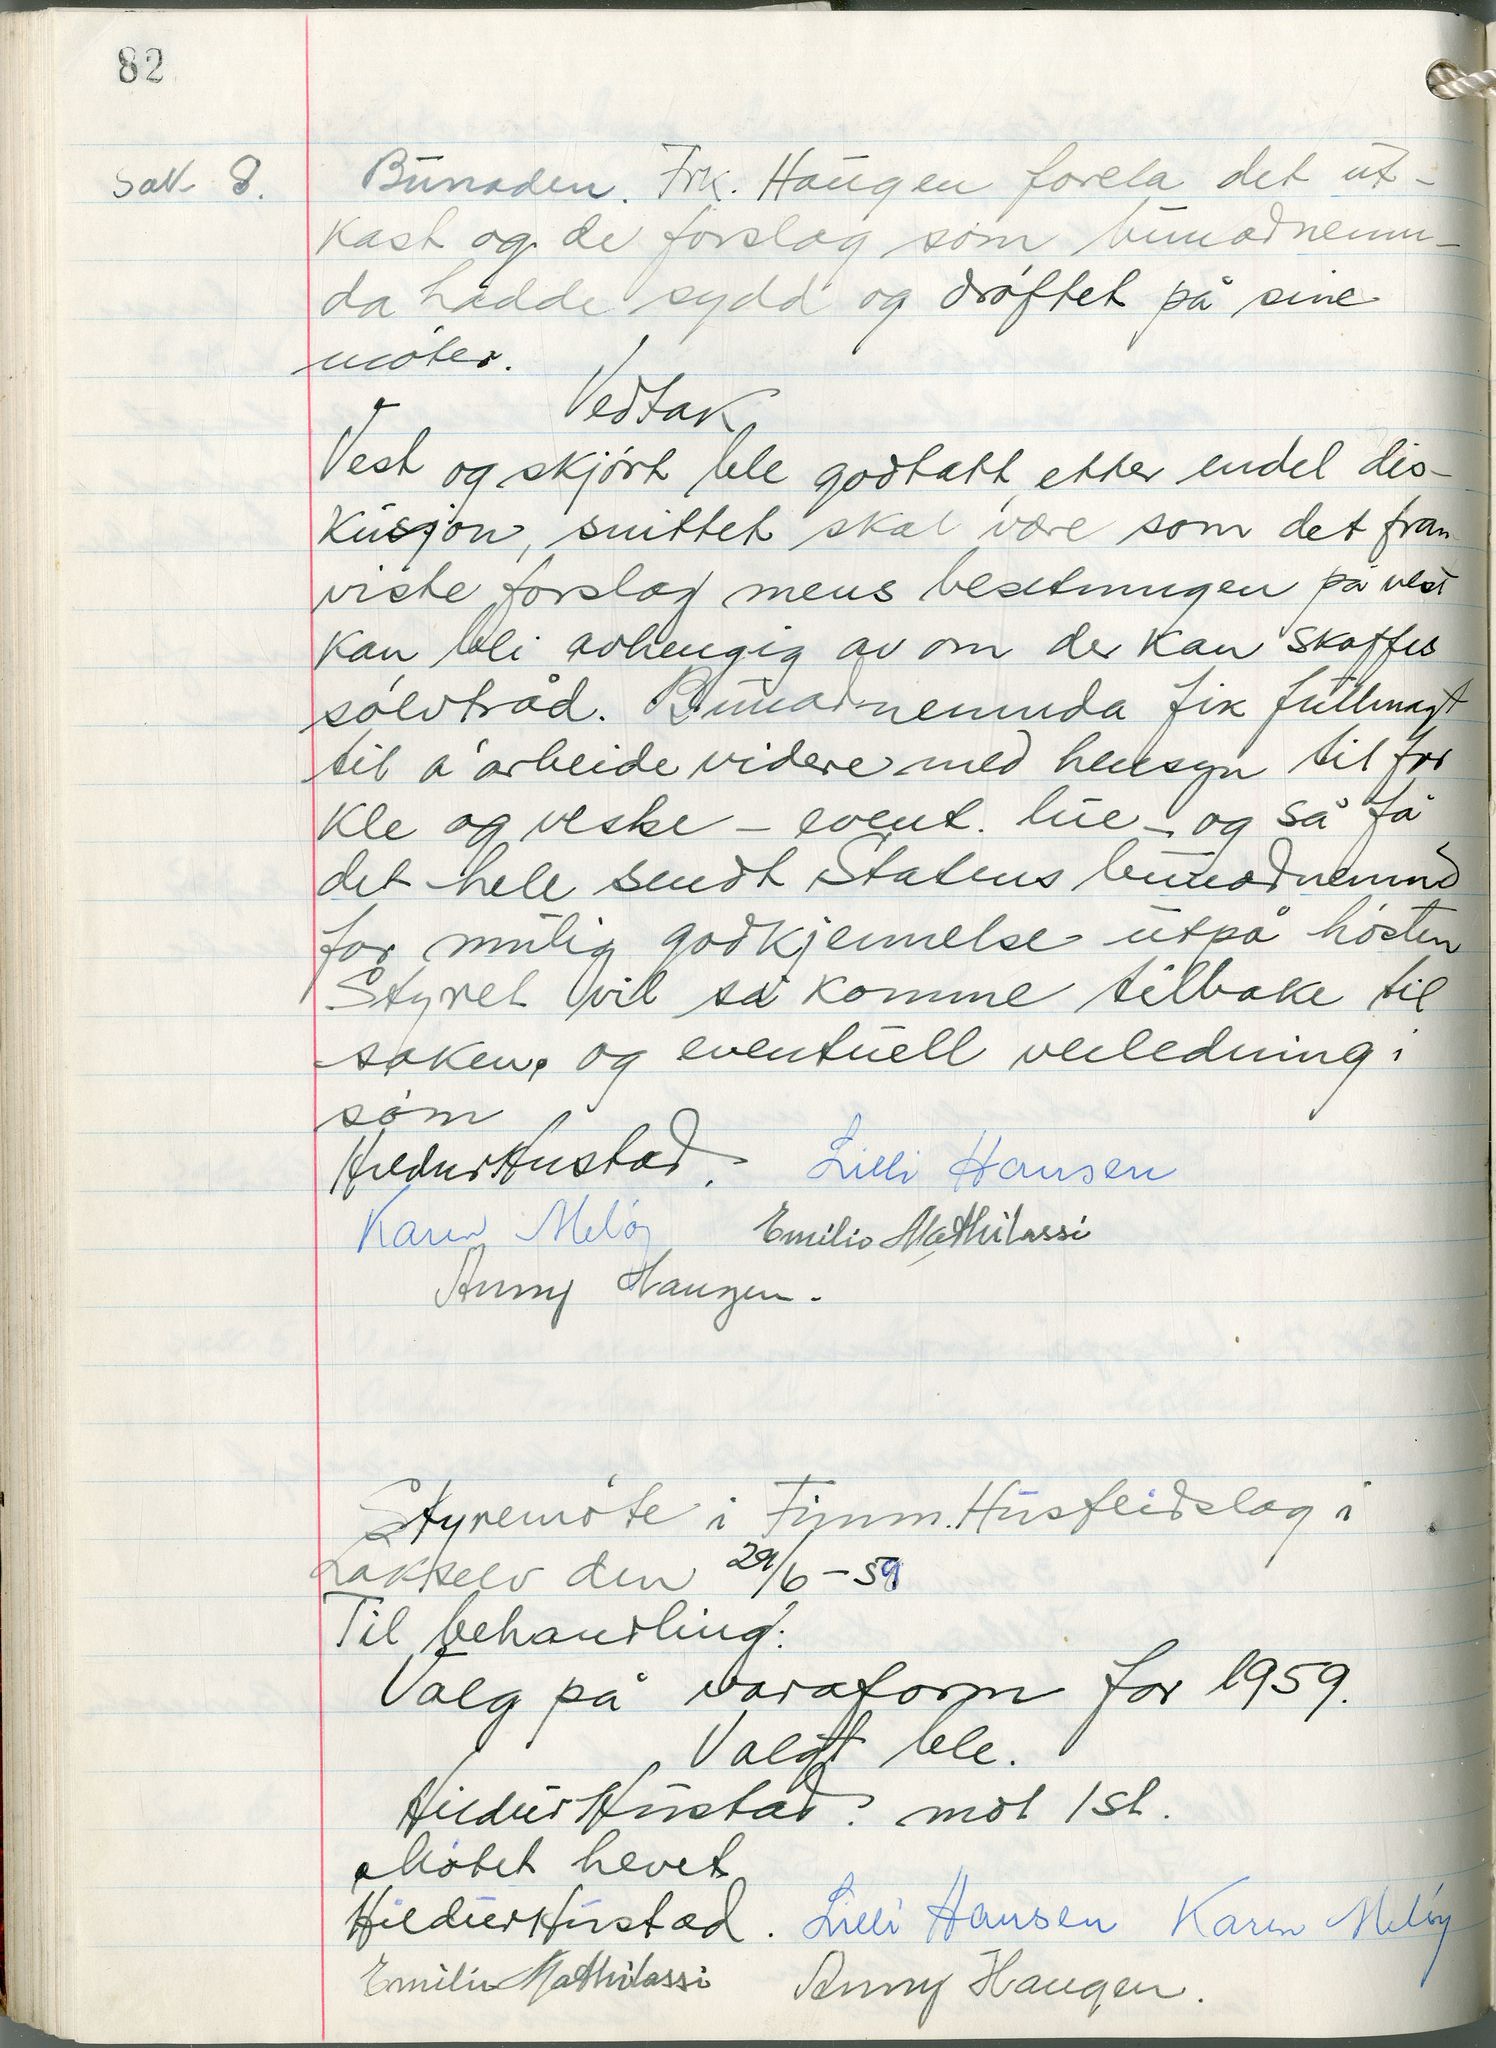 82
Sak 8. Bunaden. Frk. Haugen forela det ut-
kast og de forslag som bunadnemn-
da hadde sydd og drøftet på sine
møter.
Vedtak
Vest og skjørt ble godtatt etter endel dis-
kusjon, snittet skal være som det fram
viste forslag mens besetningen på vest
kan bli avhengig av om der kan skaffes
sølvtråd. Bunadnemnda fik fullmagt
til å arbeide videre med hensyn til for
kle og veske - event. lue - og så få
det hele sendt Statens bunadnemnd
for mulig godkjennelse utpå høsten
Styret vil så komme tilbake til
saken. og eventuell veiledning i
søm
Hildur Hustad. Lilli Hansen
Karen Meløy Emilie Mathilassi
Anny Haugen.
Styremøte i Finnm. Husflidslag i
Lakselv den 29/6-59
Til behandling:
Valg på varaform for 1959.
Valgt ble.
Hildur Hustad. mot 1 st.
Møtet hevet
Hildur Hustad. Lilli Hansen Karen Meløy
Emilie Mathilassi Anny Haugen.